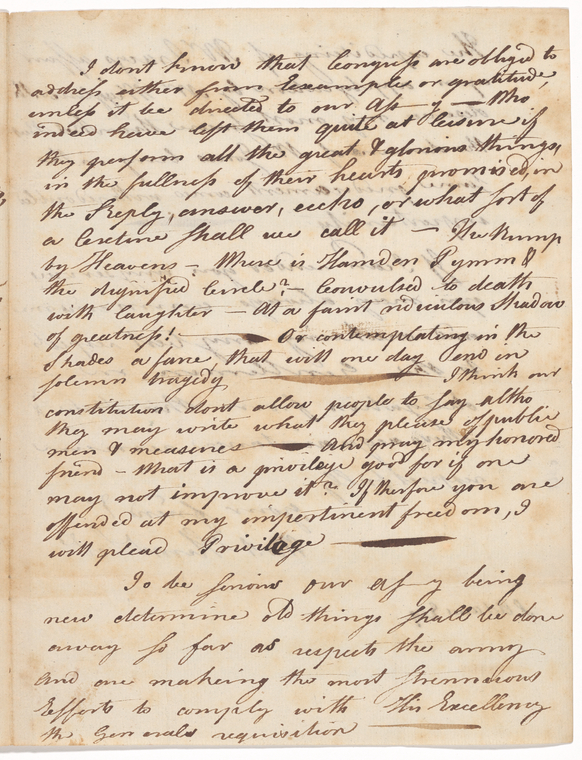 I dont know that Congress are obliged to
address either from Example or gratitude,
unless it be directed to our Ass–y — Who
indeed have left them quite at leisure if
they perform all the great & glorious things,
in the fullness of their hearts promised, in
the Reply, answer, eccho, or what sort of
a Creature shall we call it — The Rump
by Heavens — Where is Hamden Pymm &
the dignified Circle? — Convulsed to death
with laughter — At a faint ridiculous Shadow
of greatness! — Or contemplating in the
Shades a farce, that will one day end in
solemn tragedy — I think our
constitution dont allow people to say altho
they may write what they please of public
men & measures — And pray my honored
friend – What is a privilege good for if one
may not improve it? If therfore you are
offended at my impertinent freedom, I
will plead Privilege —
To be serious our Ass–y being
new determine old things shall be done
away so far as respects the army
and are makeing the most strenuous
Efforts to comply with His Excellency
the Generals requisition